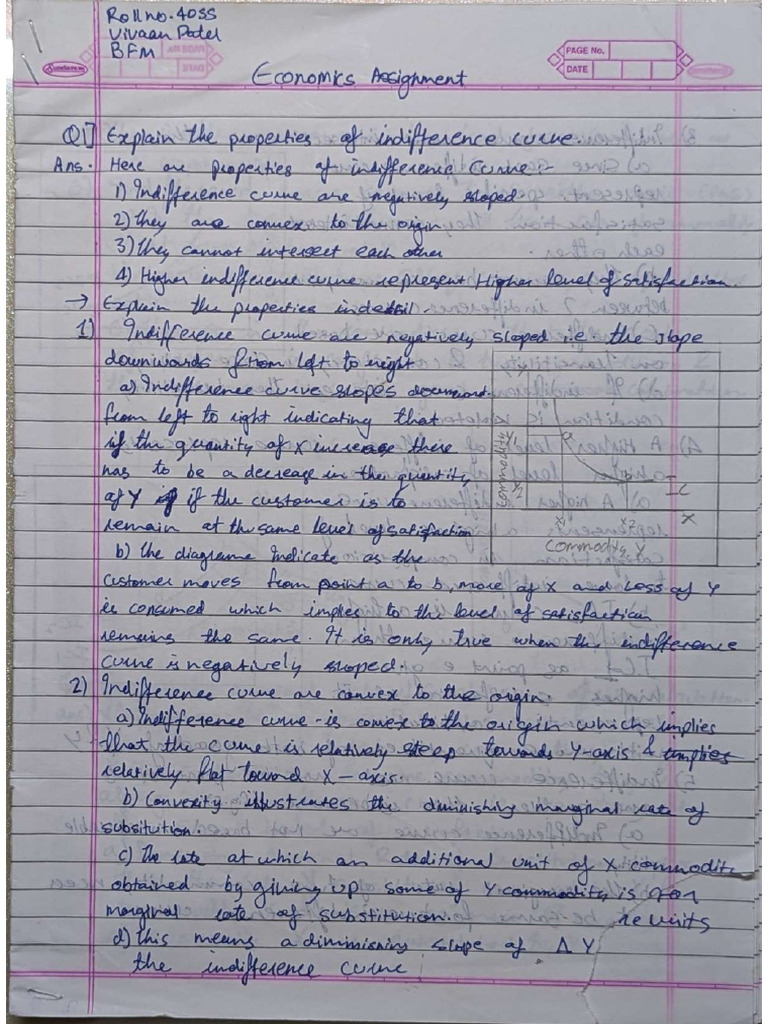 Roll no. 4055
Vivaan Patel
BFM
PAGE No.
DATE
Economics Assignment
Q1] Explain the properties of indifference curve.
Ans. Here are properties of indifference Curve :-
1) Indifference curve are negatively sloped
2) they are convex to the origin
3) they cannot intersect each other
4) Higher indifference curve represent Higher level of satisfaction.
→ Explain the properties indetail.
1) Indifference curve are negatively sloped i.e the slope
downwards from left to right
a) Indifference curve slopes downward
from left to right indicating that
if the quantity of X increase there
has to be a decrease in the quantity
of Y if the customer is to
remain at the same level of satisfaction
commodity
Y1
IC
X
X1 X2
Commodity Y
b) the diagrame indicate as the
customer moves from point a to b, more of X and Less of Y
is consumed which implies to the level of satisfaction
remains the same. It is only true when the indifference
curve is negatively sloped.
2) Indifference curve are convex to the origin.
a) Indifference curve is convex to the origin which implies
that the curve is relatively steep towards Y-axis & implies
relatively flat toward X-axis.
b) Convexity illustrates the diminishing marginal rate of
subsitution
c) The rate at which an additional unit of X commodity
obtained by giving up some of Y commodity is
marginal rate of substitution. units
d) this means a diminisning slope of Δ Y
the indifference curve